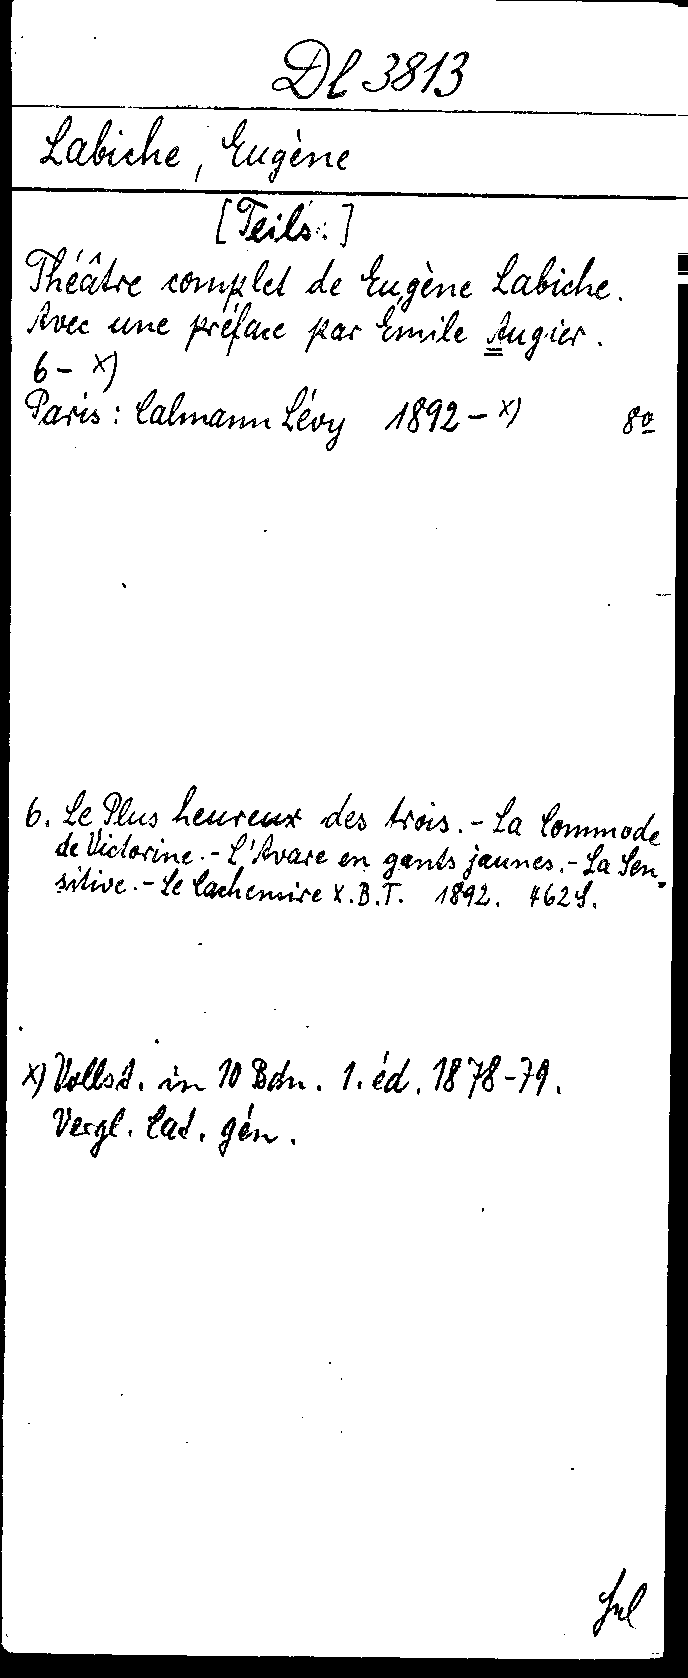 Dl 3813
Labiche, Eugène
[Teils.]
Théâtre complet de Eugène Labiche.
Avec une préface par Emile Augier.
6 - x)
Paris: Calmann Lévy 1892 - x) 8o
6. Le Plus heureux des trois. - La Commode
de Victorine. - L'Avare en gants jaunes. - La Sen-
sitive. - Le Cachemire X.B.T. 1892. 462 S.
x) Vollst. in 10 Bdn. 1. éd. 1878-79.
Vergl. Cat. gén.